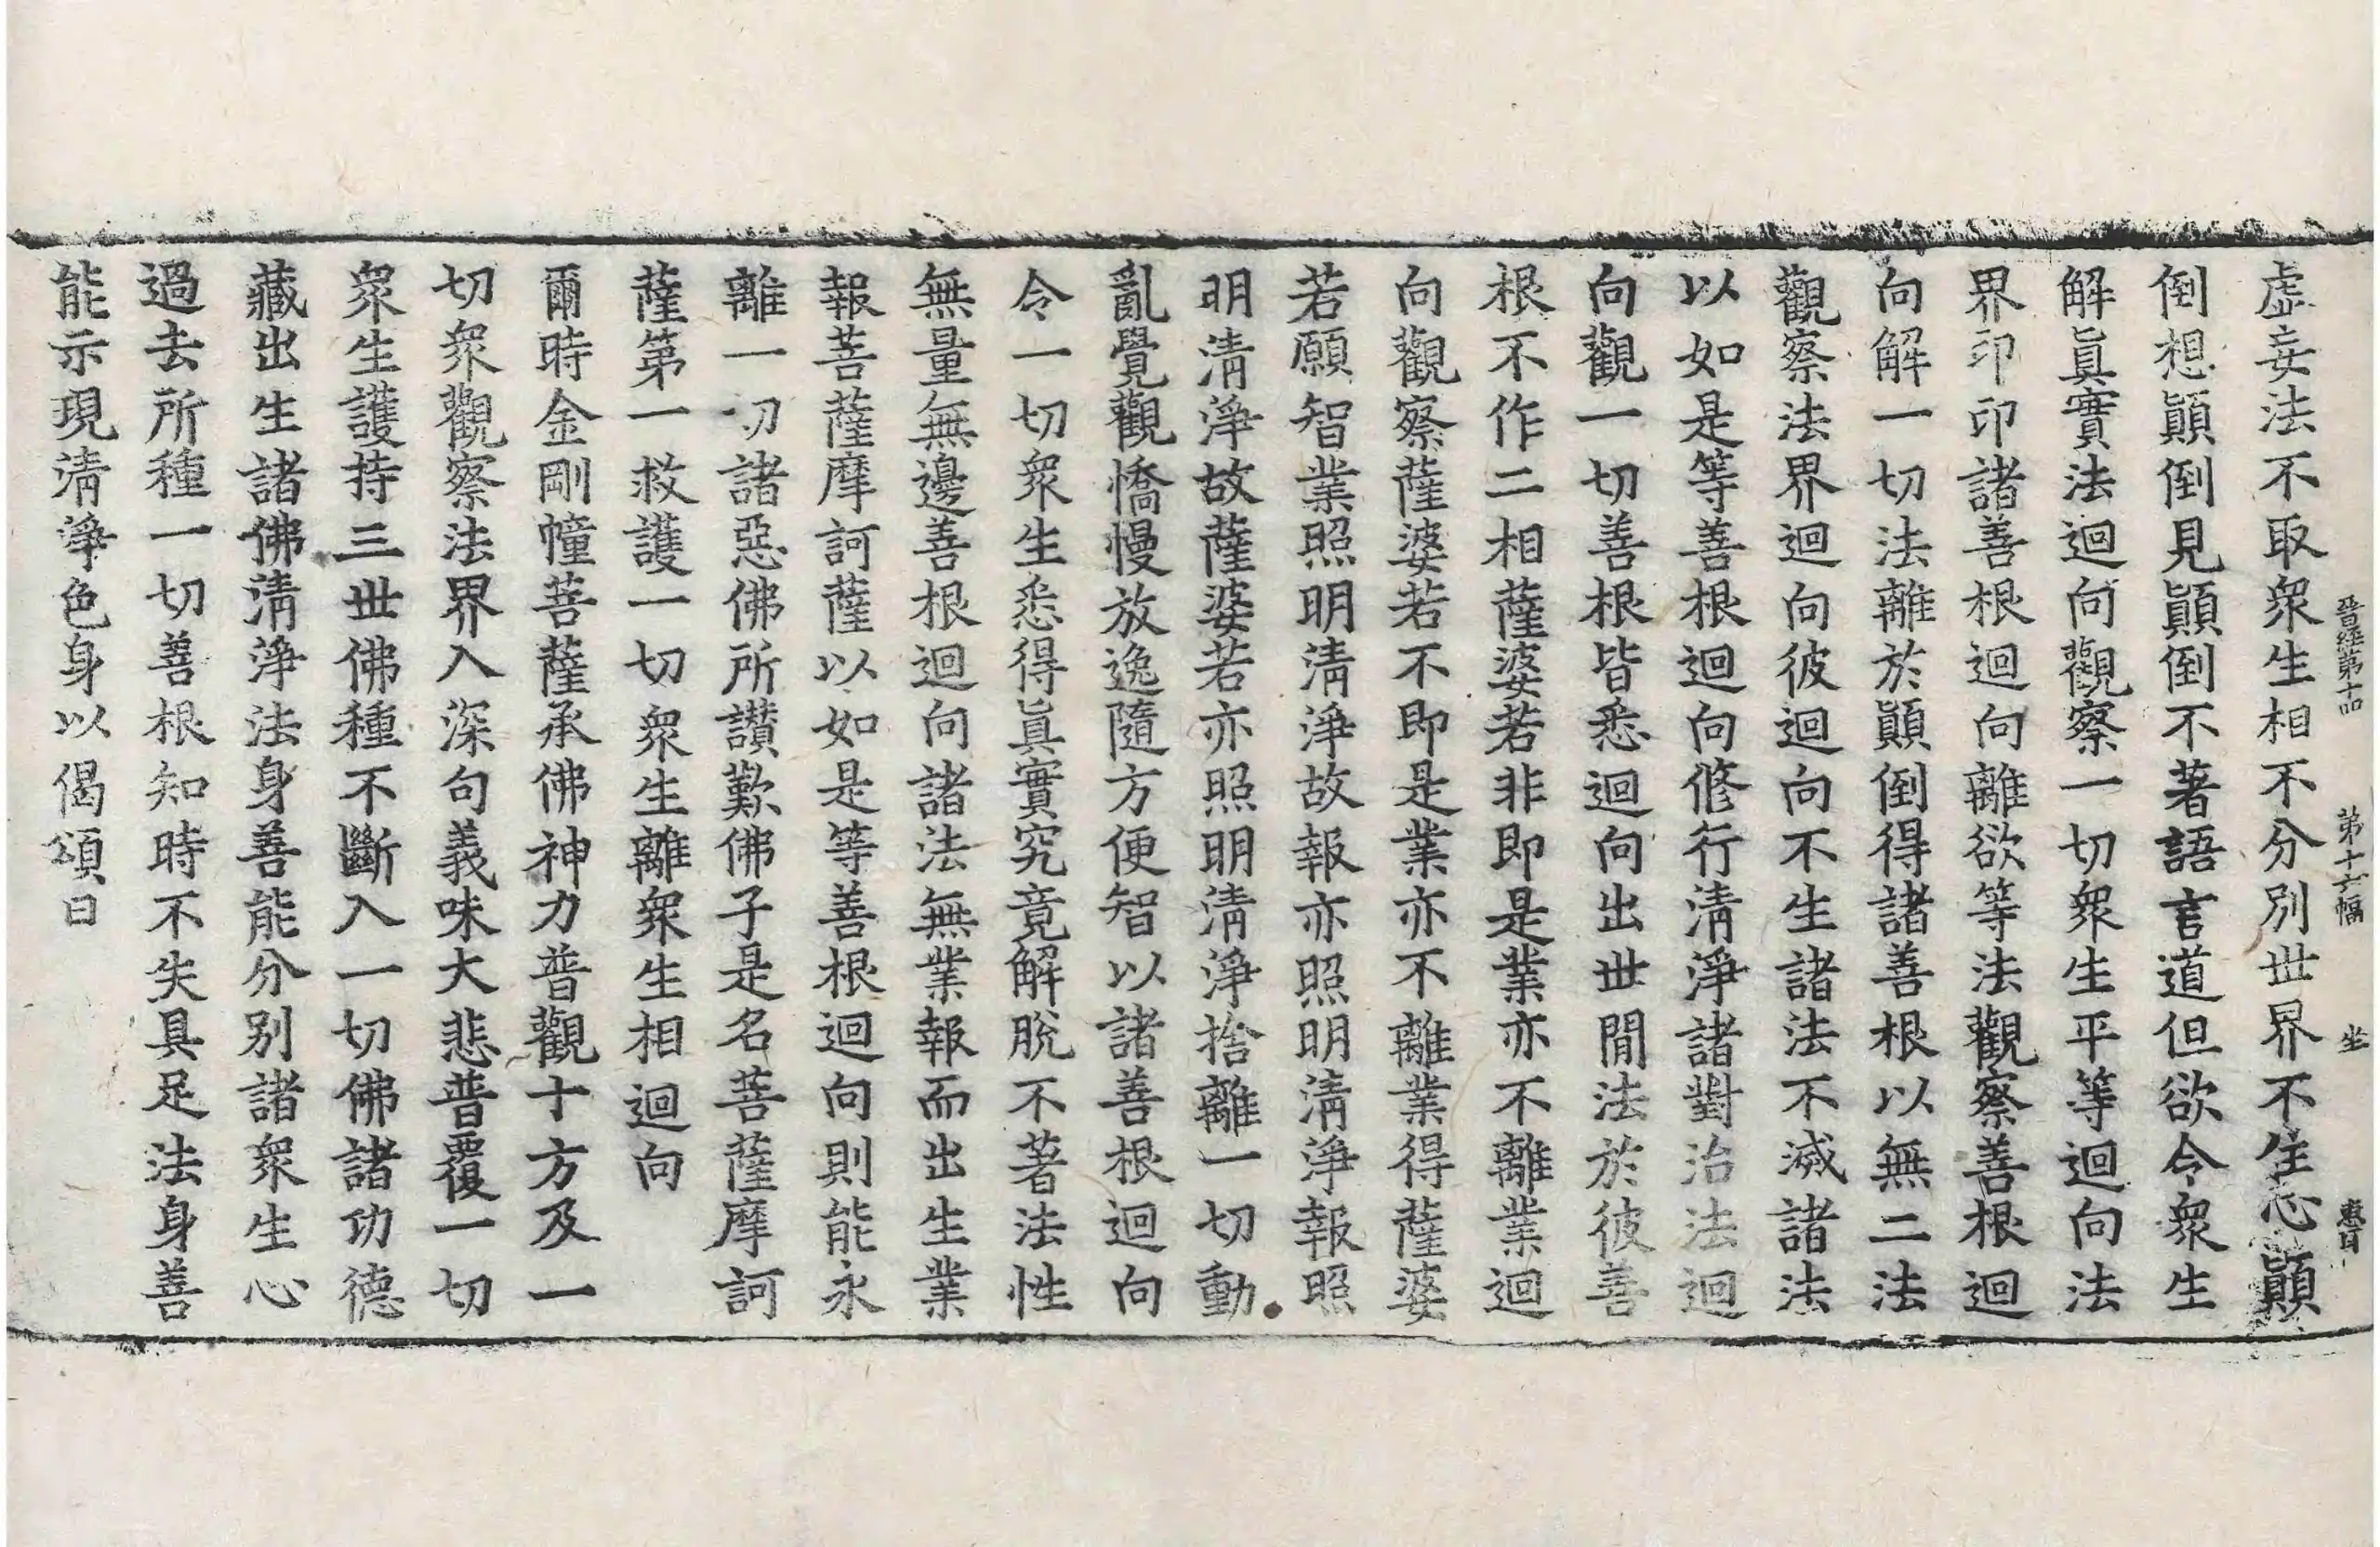 晉經第十四　第十六幅　坐　惠目
虛妄法不取眾生相不分別世界不生心顛
倒想顛倒見顛倒不著語言道但欲令眾生
解眞實法迴向觀察一切眾生平等迴向法
界印印諸善根迴向離欲等法觀察善根迴
向解一切法離於顛倒得諸善根以無二法
觀察法界迴向彼迴向不生諸法不滅諸法
以如是等善根迴向修行清淨諸對治法迴
向觀一切善根皆悉迴向出世間法於彼善
根不作二相薩婆若非即是業亦不離業迴
向觀察薩婆若不即是業亦不離業得薩婆
若願智業照明清淨故報亦照明清淨報照
明清淨故薩婆若亦照明清淨捨離一切動
亂覺觀憍慢放逸隨方便智以諸善根迴向
令一切眾生悉得眞實究竟解脫不著法性
無量無邊善根迴向諸法無業報而出生業
報菩薩摩訶薩以如是等善根迴向則能永
離一切諸惡佛所讃歎佛子是名菩薩摩訶
薩第一救護一切眾生離眾生相迴向
爾時金剛幢菩薩承佛神力普觀十方及一
切眾觀察法界入深句義味大悲普覆一切
眾生護持三世佛種不斷入一切佛諸功德
藏出生諸佛清淨法身善能分別諸眾生心
過去所種一切善根知時不失具足法身善
能示現清淨色身以偈頌曰